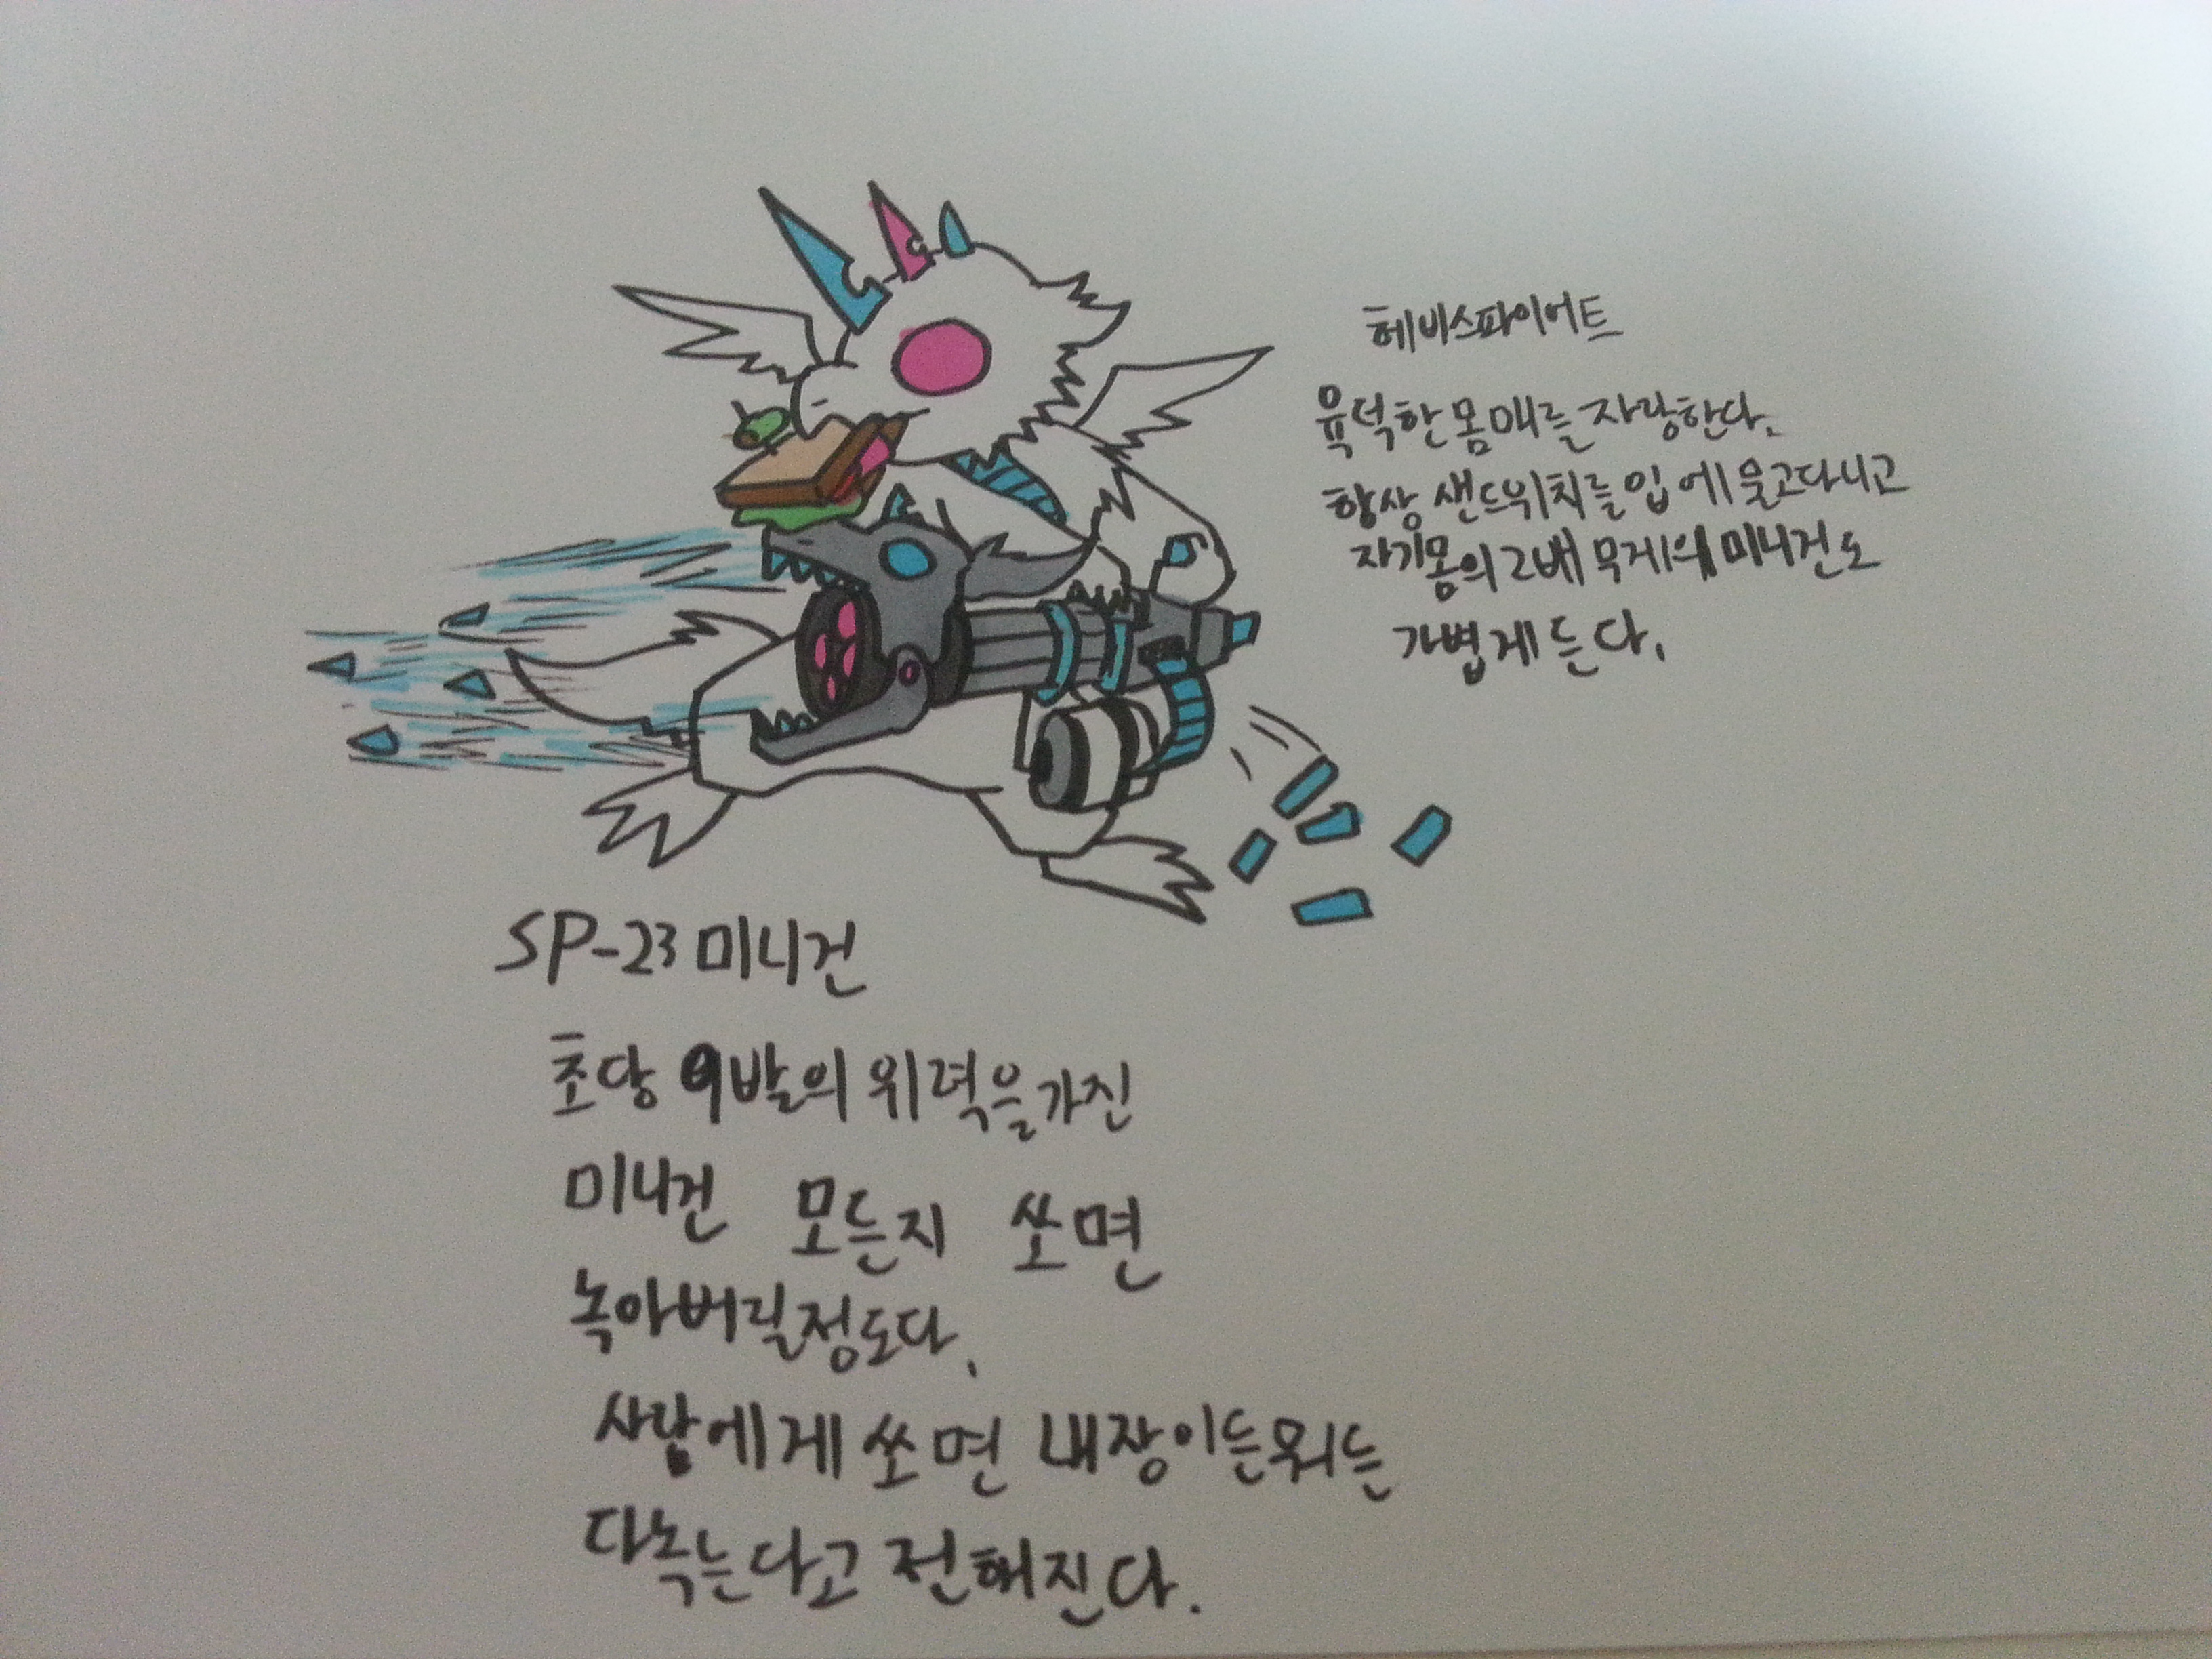 헤비스파이어트
육덕한 몸매를 자랑한다.
항상 샌드위치를 입에 물고다니고
자기몸의 2배 무게의 미니건도
가볍게 든다.
SP-23 미니건
초당 9발의 위력을 가진
미니건 모든지 쏘면
녹아버릴정도다.
사람에게 쏘면 내장이든뭐든
다녹는다고 전해진다.